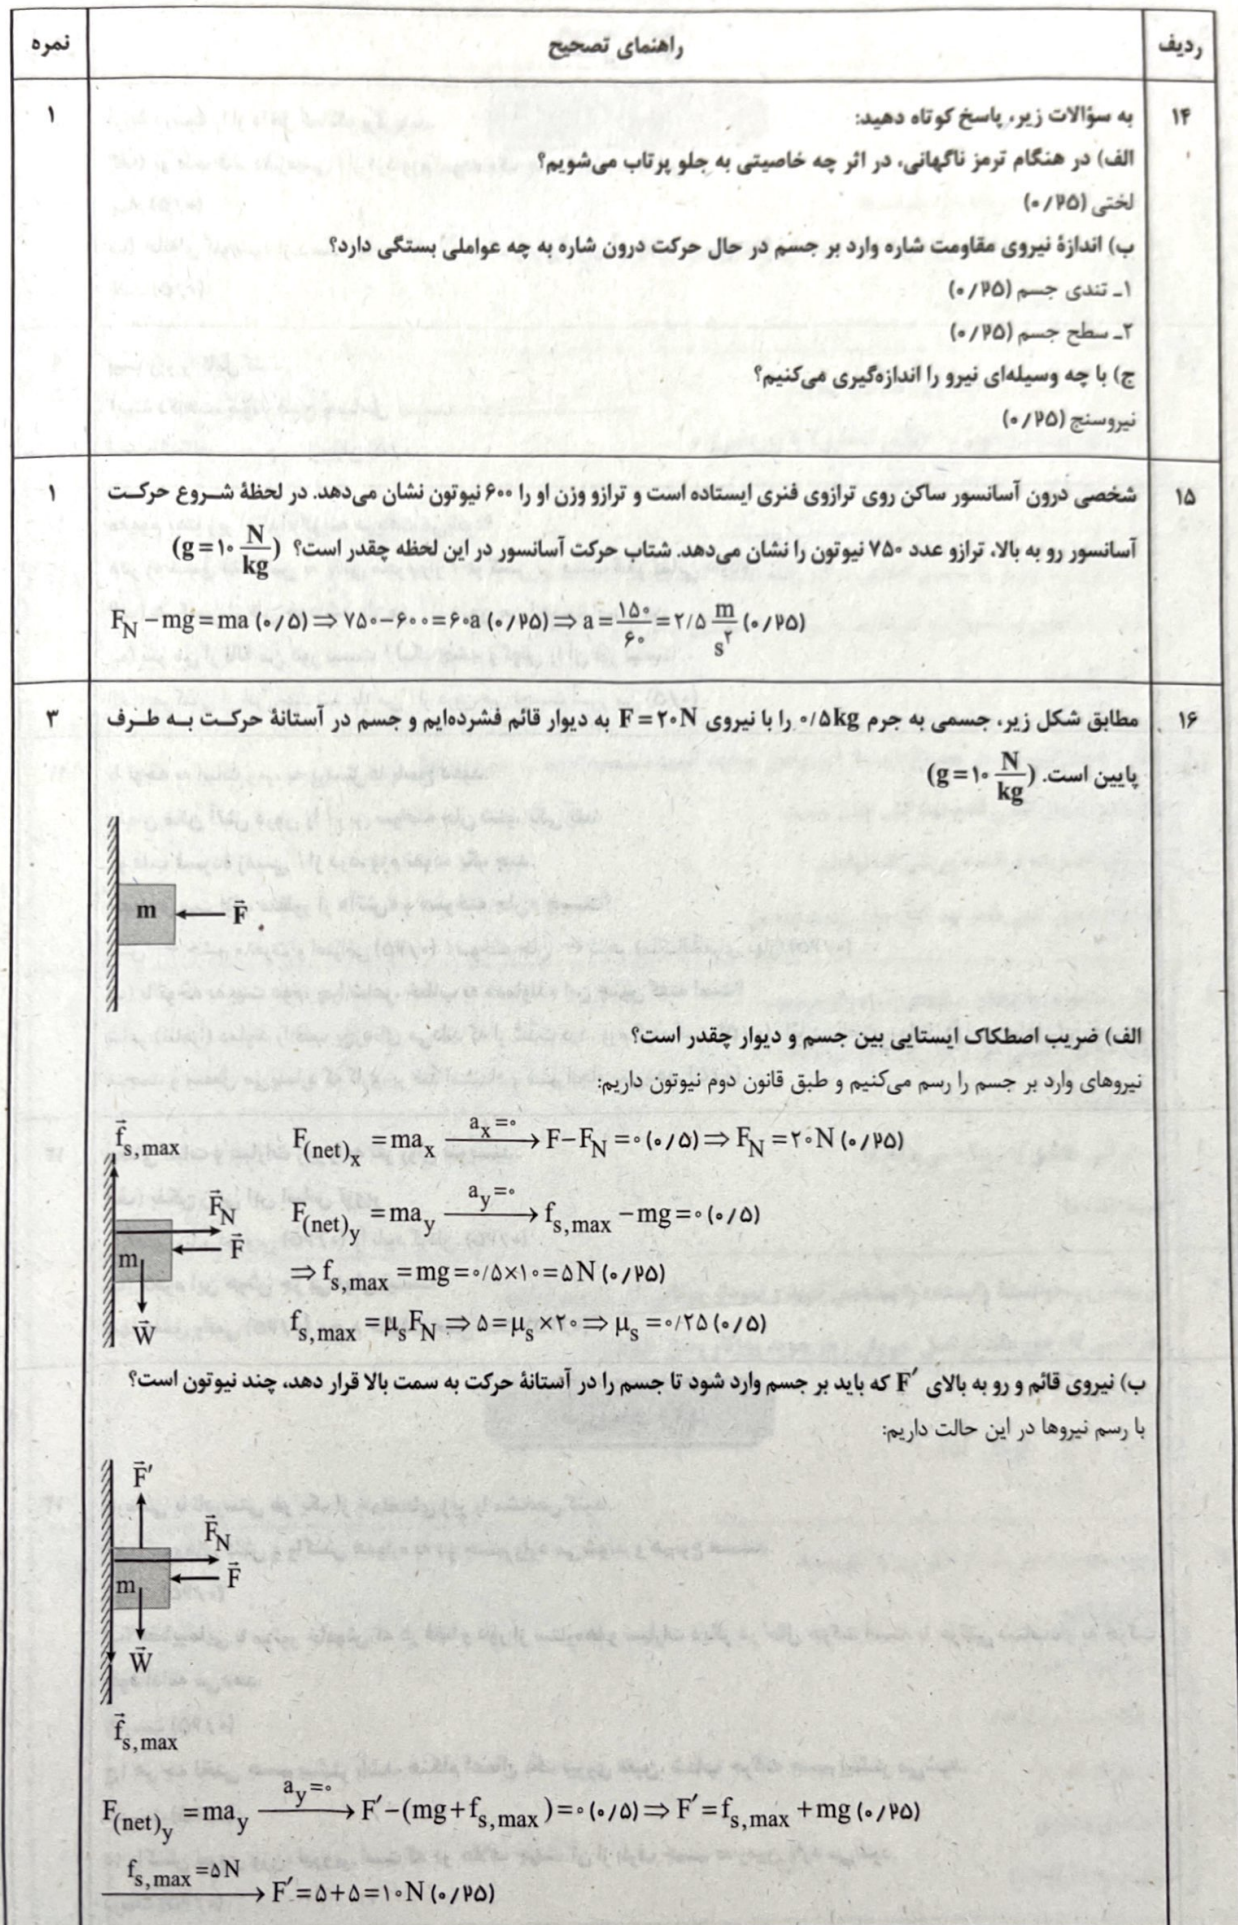 ردیف راهنمای تصحیح نمره
۱۴ به سؤالات زیر، پاسخ کوتاه دهید: ۱
الف) در هنگام ترمز ناگهانی، در اثر چه خاصیتی به جلو پرتاب می‌شویم؟
لختی (۰/۲۵)
ب) اندازهٔ نیروی مقاومت شاره وارد بر جسم در حال حرکت درون شاره به چه عواملی بستگی دارد؟
۱ـ تندی جسم (۰/۲۵)
۲ـ سطح جسم (۰/۲۵)
ج) با چه وسیله‌ای نیرو را اندازه‌گیری می‌کنیم؟
نیروسنج (۰/۲۵)
۱۵ شخصی درون آسانسور ساکن روی ترازوی فنری ایستاده است و ترازو وزن او را ۶۰۰ نیوتون نشان می‌دهد. در لحظهٔ شروع حرکت ۱
آسانسور رو به بالا، ترازو عدد ۷۵۰ نیوتون را نشان می‌دهد. شتاب حرکت آسانسور در این لحظه چقدر است؟ (g = ۱۰ N/kg)
F_N − mg = ma (۰/۵) ⇒ ۷۵۰ − ۶۰۰ = ۶۰a (۰/۲۵) ⇒ a = ۱۵۰/۶۰ = ۲/۵ m/s² (۰/۲۵)
۱۶ مطابق شکل زیر، جسمی به جرم ۰/۵kg را با نیروی F = ۲۰N به دیوار قائم فشرده‌ایم و جسم در آستانهٔ حرکت به طرف ۳
پایین است. (g = ۱۰ N/kg)
m F⃗
الف) ضریب اصطکاک ایستایی بین جسم و دیوار چقدر است؟
نیروهای وارد بر جسم را رسم می‌کنیم و طبق قانون دوم نیوتون داریم:
f⃗_s,max
F⃗_N
F⃗
m
W⃗
F_(net)x = ma_x —a_x = ۰→ F − F_N = ۰ (۰/۵) ⇒ F_N = ۲۰N (۰/۲۵)
F_(net)y = ma_y —a_y = ۰→ f_s,max − mg = ۰ (۰/۵)
⇒ f_s,max = mg = ۰/۵ × ۱۰ = ۵N (۰/۲۵)
f_s,max = μ_s F_N ⇒ ۵ = μ_s × ۲۰ ⇒ μ_s = ۰/۲۵ (۰/۵)
ب) نیروی قائم و رو به بالای F′ که باید بر جسم وارد شود تا جسم را در آستانهٔ حرکت به سمت بالا قرار دهد، چند نیوتون است؟
با رسم نیروها در این حالت داریم:
F⃗′
F⃗_N
F⃗
m
W⃗
f⃗_s,max
F_(net)y = ma_y —a_y = ۰→ F′ − (mg + f_s,max) = ۰ (۰/۵) ⇒ F′ = f_s,max + mg (۰/۲۵)
—f_s,max = ۵N→ F′ = ۵ + ۵ = ۱۰N (۰/۲۵)